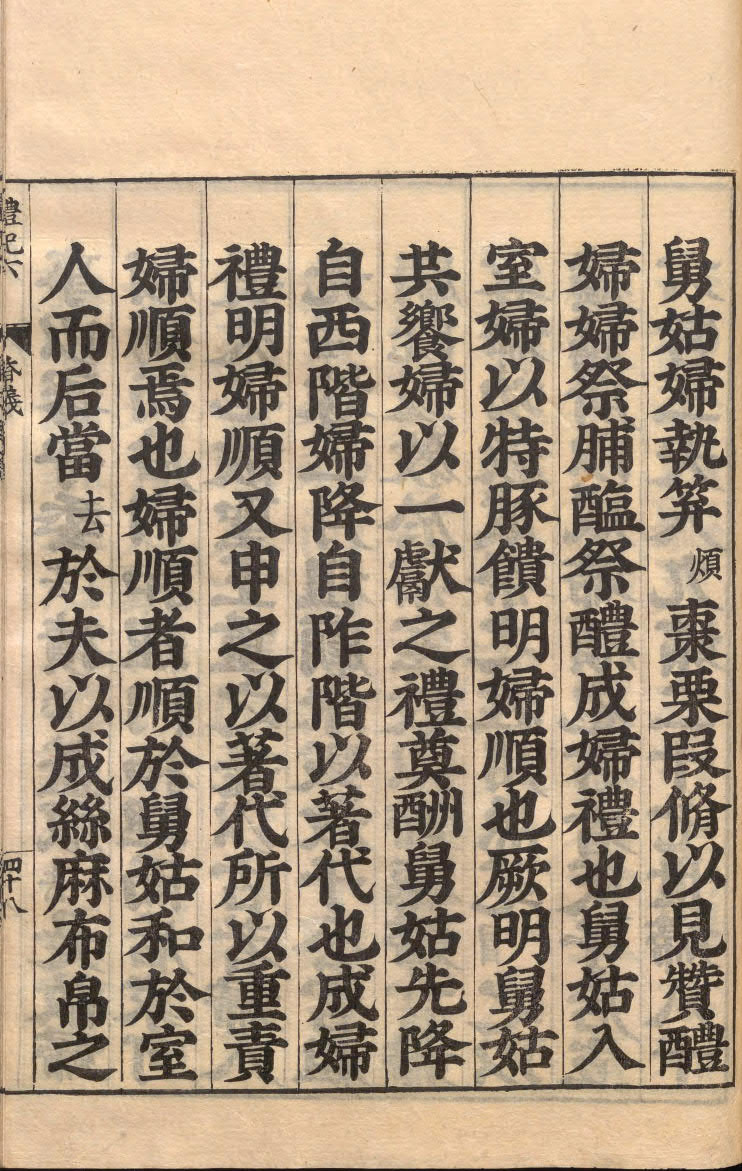 舅姑婦執笲煩棗栗段脩以見贊醴
婦婦祭脯醢祭醴成婦禮也舅姑入
室婦以特豚饋明婦順也厥明舅姑
共饗婦以一獻之禮奠酬舅姑先降
自西階婦降自阼階以著代也成婦
禮明婦順又申之以著代所以重責
婦順焉也婦順者順於舅姑和於室
人而后當去於夫以成絲麻布帛之
禮記六
昏義
四十八